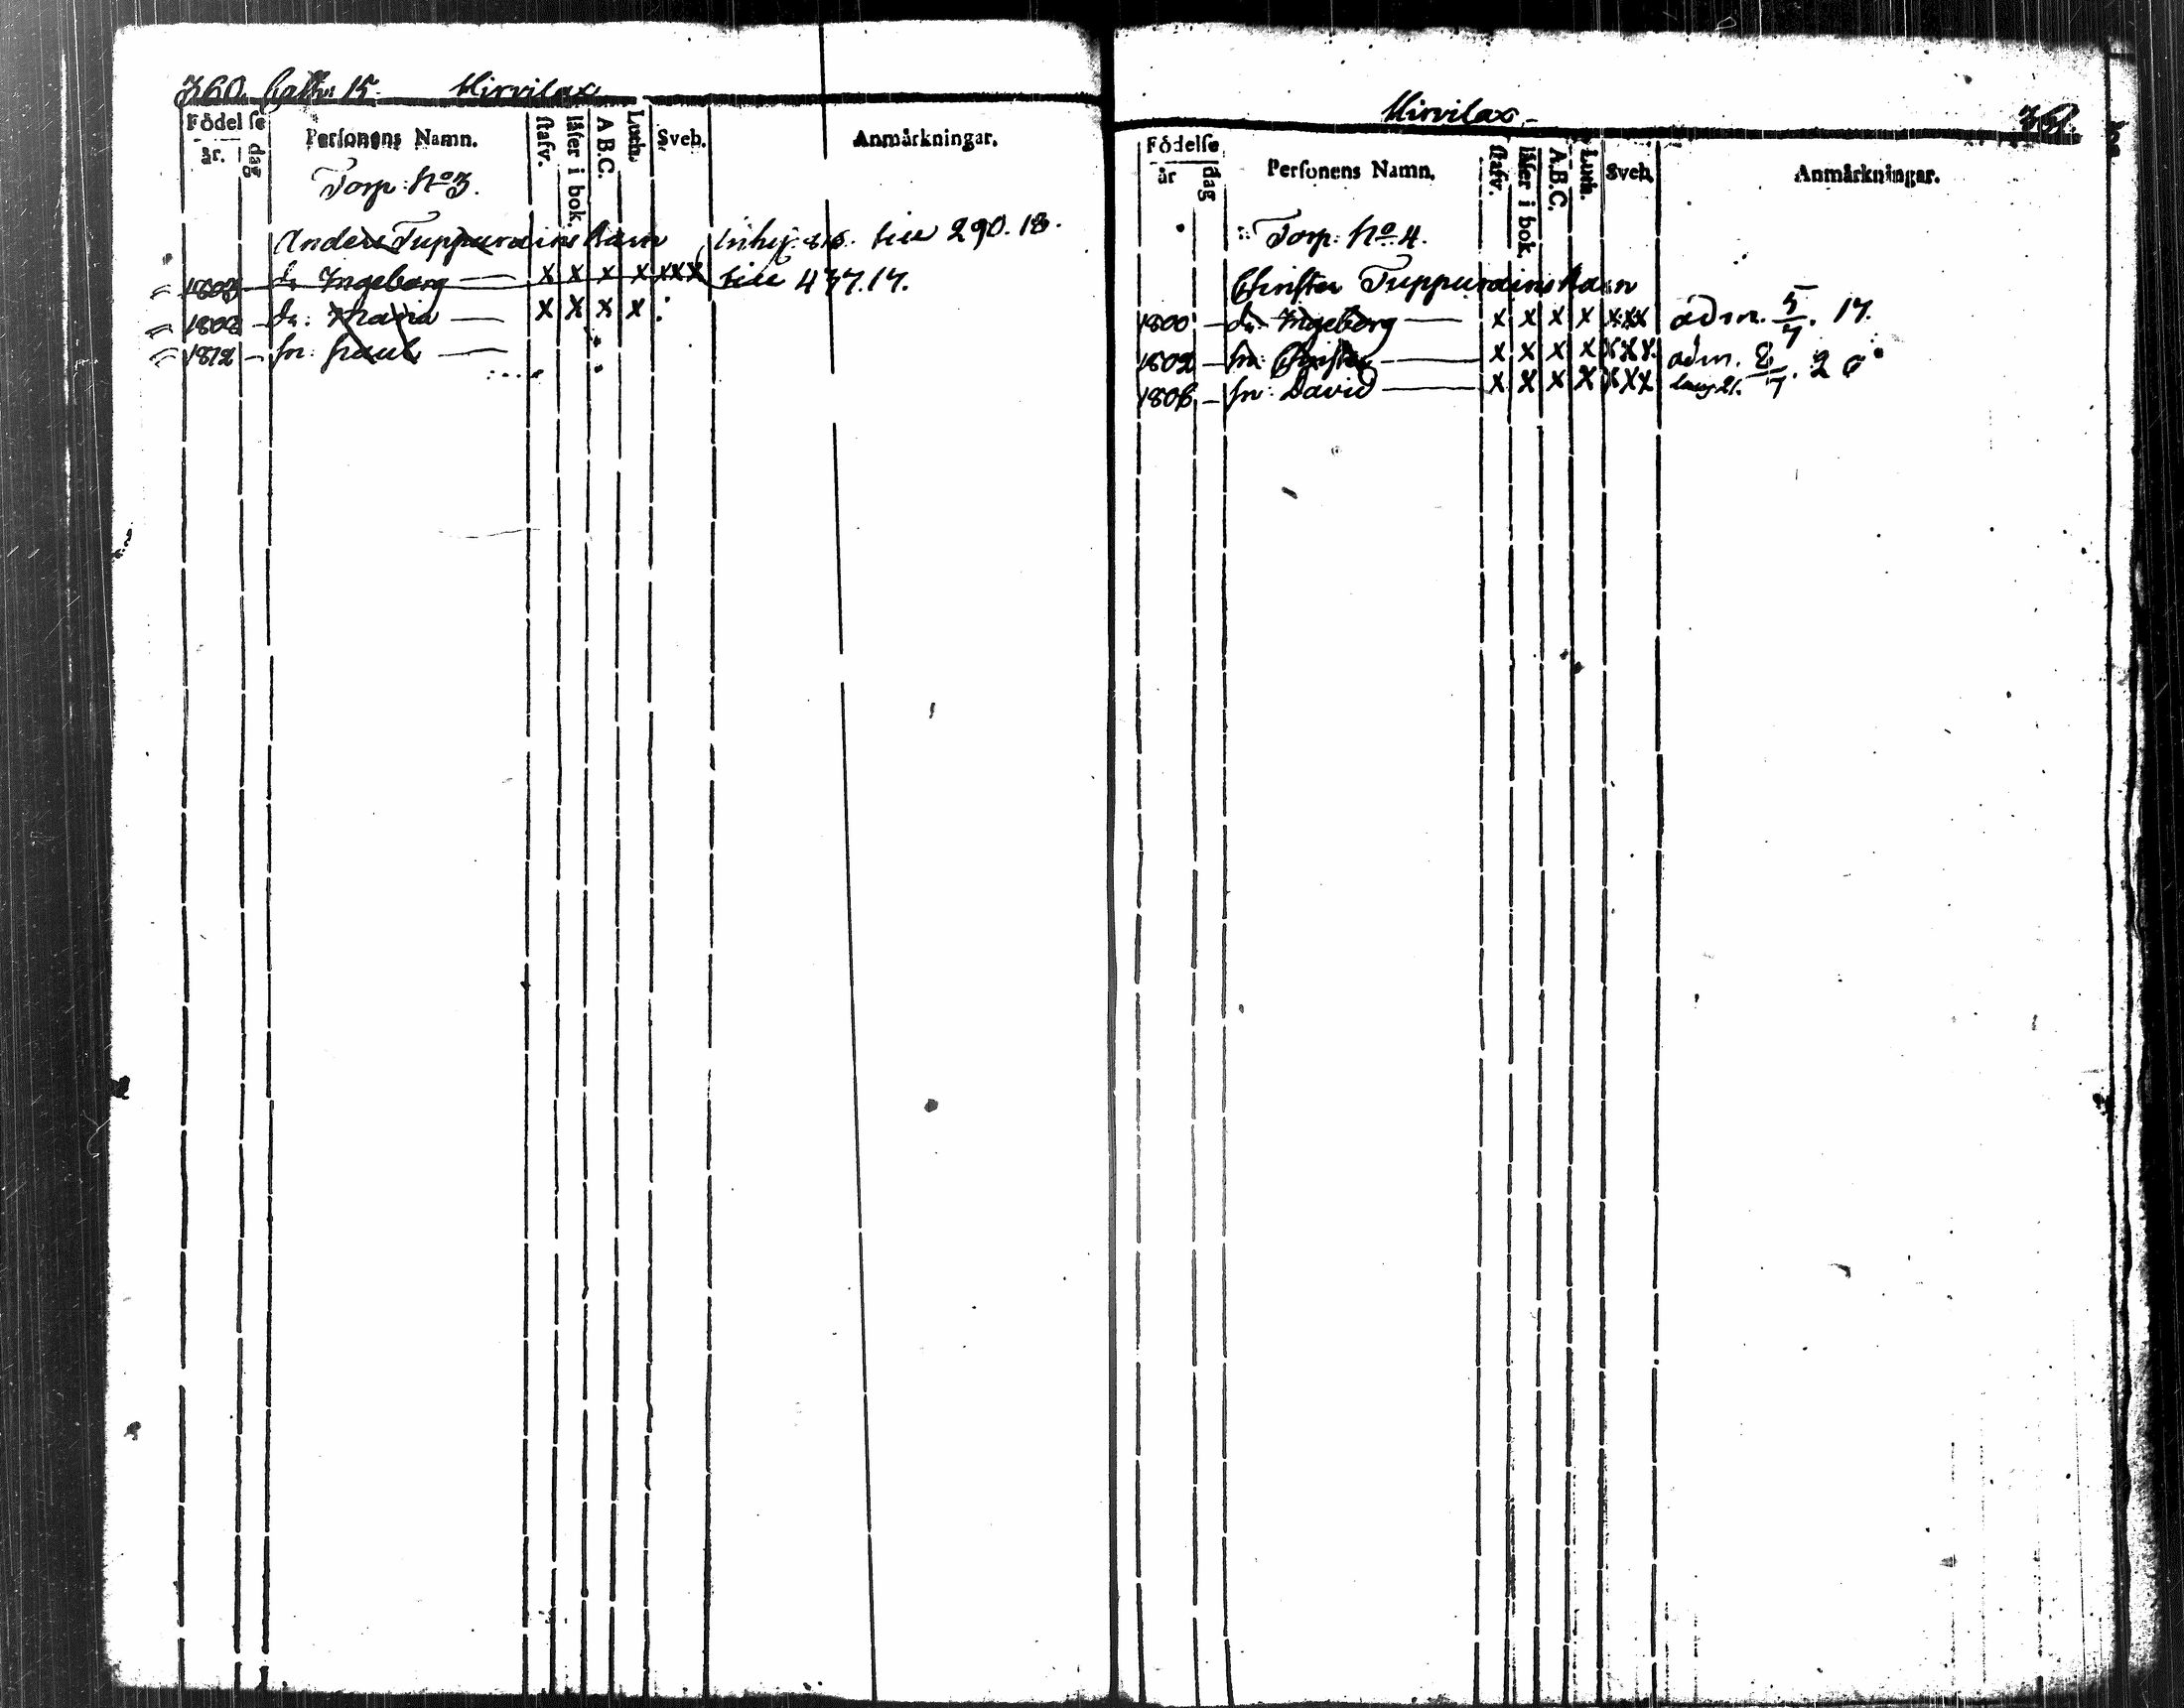 360. Hirvilax
Födelse
år. dag Personens Namn. stafv. läser i bok. A B.C. Luth. Sveb. Anmärkningar.
Torp: No 3.
Anders Tuppurains barn 290. 18.
1802 dr Ingeborg — x x x x xxx 437. 17.
dr: Maria — x x x x :
1812 — sn: Paul —
Hirvilax.
Födelse
år dag Personens Namn. stafv. läser i bok. A.B.C. Luth. Sveb. Anmärkningar.
Torp: No 4.
Christer Tuppurains barn
1800 — dr: Ingeborg — x x x x xxx adm. 5/7. 17.
1802 — sn: Christer — x x x x xxx adm.
1806 — sn: David — x x x x xxx